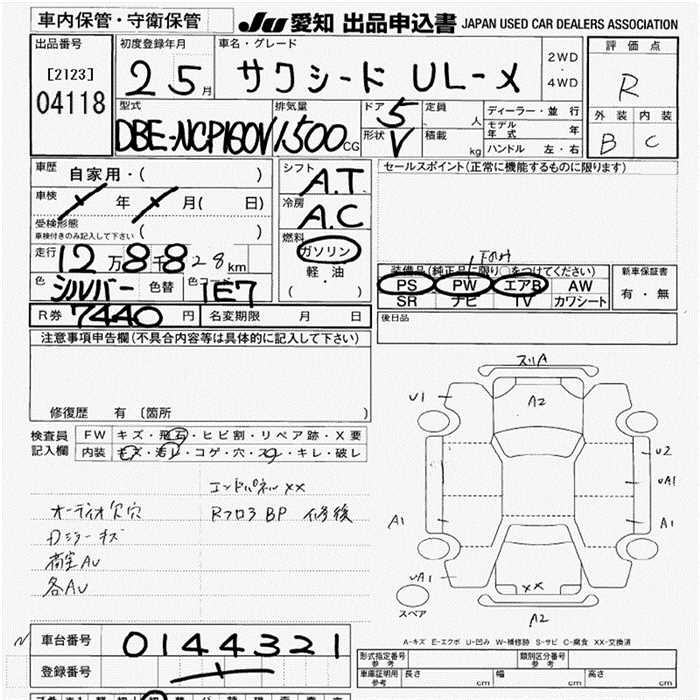 車内保管・守衛保管
Ju 愛知 出品申込書 JAPAN USED CAR DEALERS ASSOCIATION
出品番号
[2123]
04118
初度登録年月
25月
車名・グレード
サクシード UL-X
2WD
・
4WD
評価点
R
外装 内装
B C
型式
DBE-NCP160V
排気量
1500CG
ドア
5
形状
V
定員
人
積載
kg
ディーラー・並行
モデル年式 年
ハンドル 左・右
車歴 自家用・( )
車検 / 年 / 月( 日)
受検形態
車検付きのみ記入して下さい ( )
走行 12万8千828km
色 シルバー 色替 色コード 1E7
シフト
A.T.
冷房
A.C
燃料
ガソリン
軽・油
( ・ )
R券 7440円 名変期限 月 日
セールスポイント(正常に機能するものに限ります)
装備品(純正品に限り○をつけてください)
PS PW エアB AW
SR ナビ TV カワシート
新車保証書
有・無
後日品
注意事項申告欄(不具合内容等は具体的に記入して下さい)
修復歴 有〔箇所 〕
検査員
記入欄
FW キズ・飛石・ヒビ割・リペア跡・X要
内装 キズ・汚レ・コゲ・穴・スレ・キレ・破レ
エンドパネルXX
オーディオ欠穴 RフロアBP 修後
Dミラーキズ
荷室AU
各AU
スリA
U1
A2
U2
UA1
A1
A1
UA1
XX
スペア
A2
A-キズ E-エクボ U-凹み W-補修跡 S-サビ C-腐食 XX-交換済
車台番号 0144321
登録番号
形式指定番号
参考
類別区分番号
参考
車庫証明用
参考
長さ cm 幅 cm 高さ cm